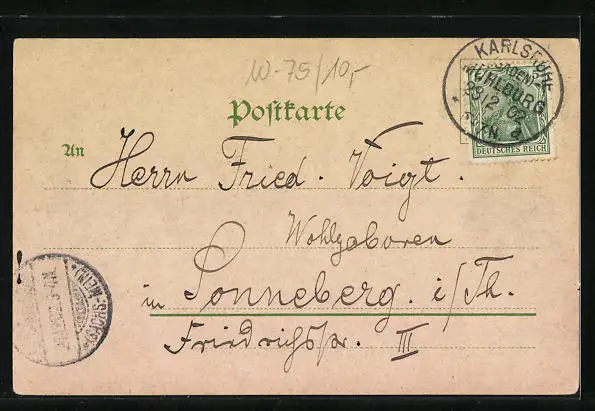 W-75/10,-
KARLSRUHE
(BADEN)
MÜHLBURG
29 12 02
DEUTSCHES REICH
Postkarte
An
Herrn Fried. Voigt.
Wohlgeboren
in Sonneberg. i/Th.
Friedrichstr. III
(SACHS-MEIN.)